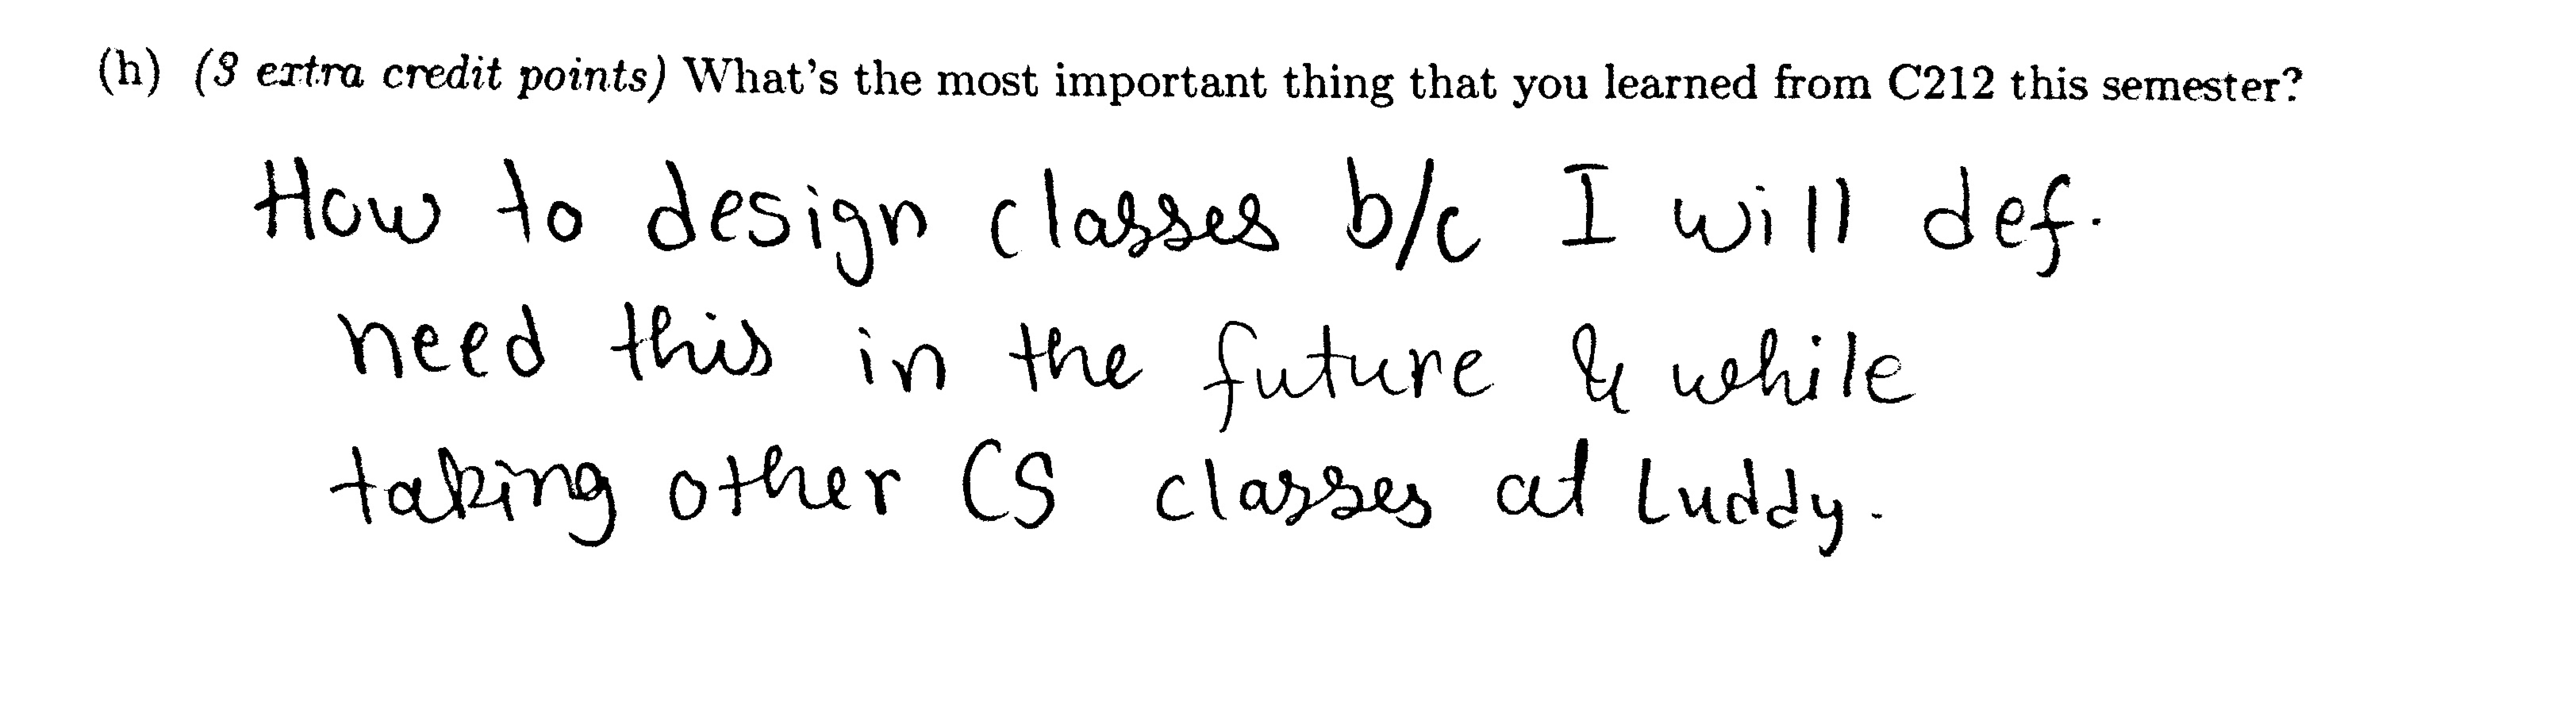 (h) (3 extra credit points) What's the most important thing that you learned from C212 this semester?
How to design classes b/c I will def.
need this in the future & while
taking other CS classes at Luddy.